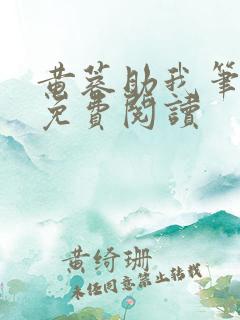 黄蓉助我筆
免費閱讀
黄绮珊
未经同意禁止转载